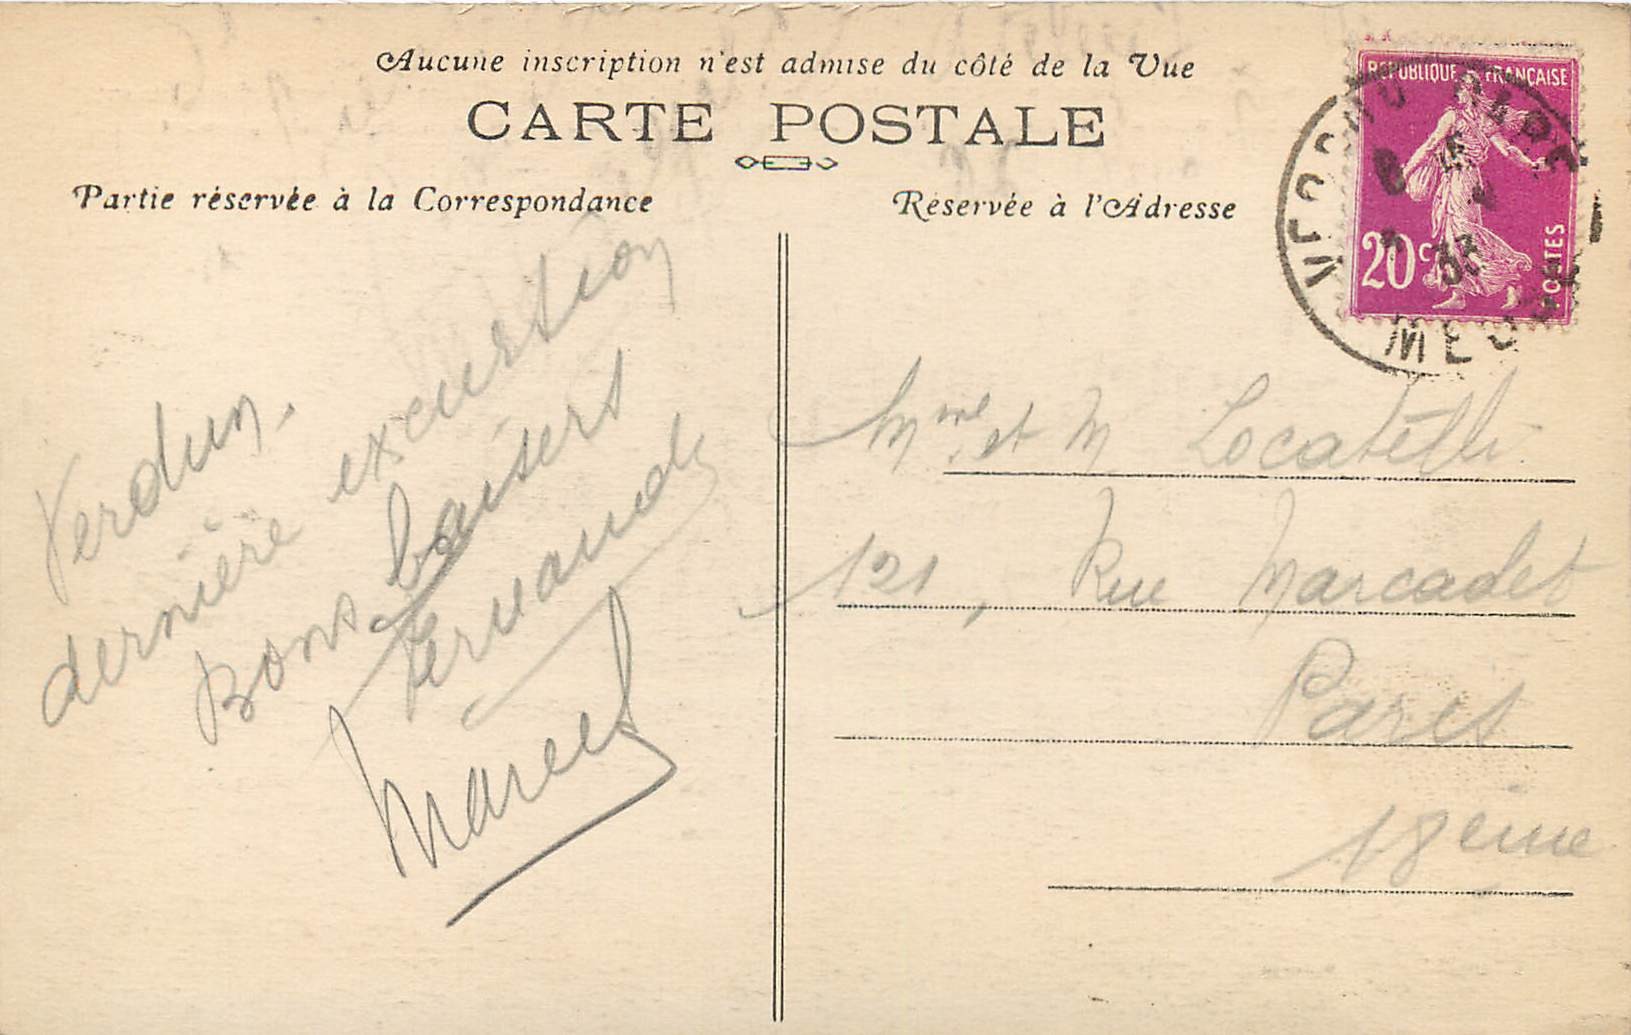 Aucune inscription n'est admise du côté de la Vue
CARTE POSTALE
Partie réservée à la Correspondance
Réservée à l'Adresse
RÉPUBLIQUE FRANÇAISE
20c
POSTES
VERDUN GARE
MEUSE
Verdun.
dernière excurstion
Bons baisers
Fernande
Marcel
Mme et M Locatelli
121, Rue Marcadet
Paris
18ème